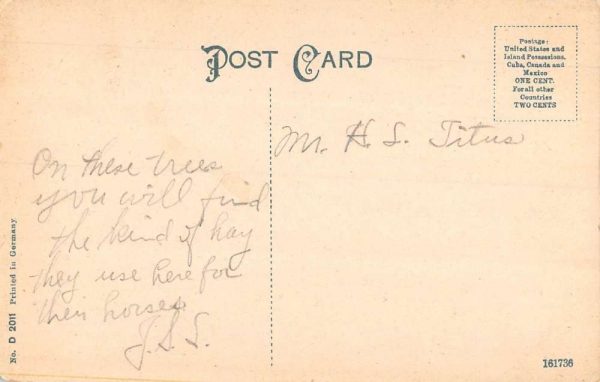 POST CARD
Postage:
United States and
Island Possessions,
Cuba, Canada and
Mexico
ONE CENT.
For all other
Countries
TWO CENTS
Mr. H. S. Titus
On these trees
you will find
the kind of hay
they use here for
their horses
J.S.S.
No. D 2011 Printed in Germany
161736